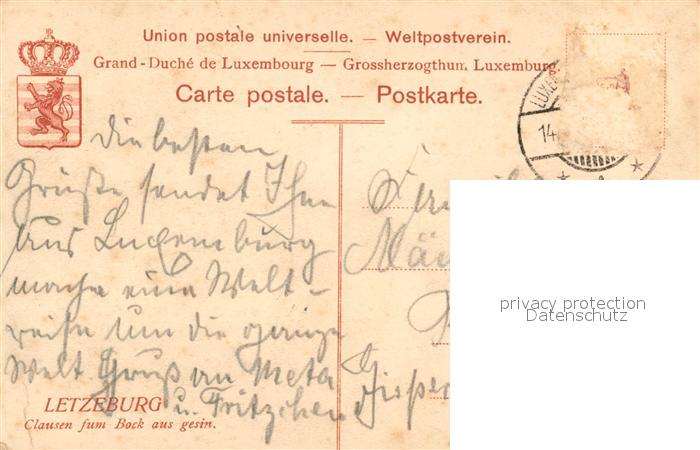 Union postale universelle. — Weltpostverein.
Grand-Duché de Luxembourg — Grossherzogthum Luxemburg.
Carte postale. — Postkarte.
14.
die besten
Grüße sendet Ihnen
aus Luxemburg
mache eine Welt-
reise um die ganze
Welt. Gruß an Meta
u. Fritzchen
LETZEBURG
Clausen fum Bock aus gesin.
privacy protection
Datenschutz